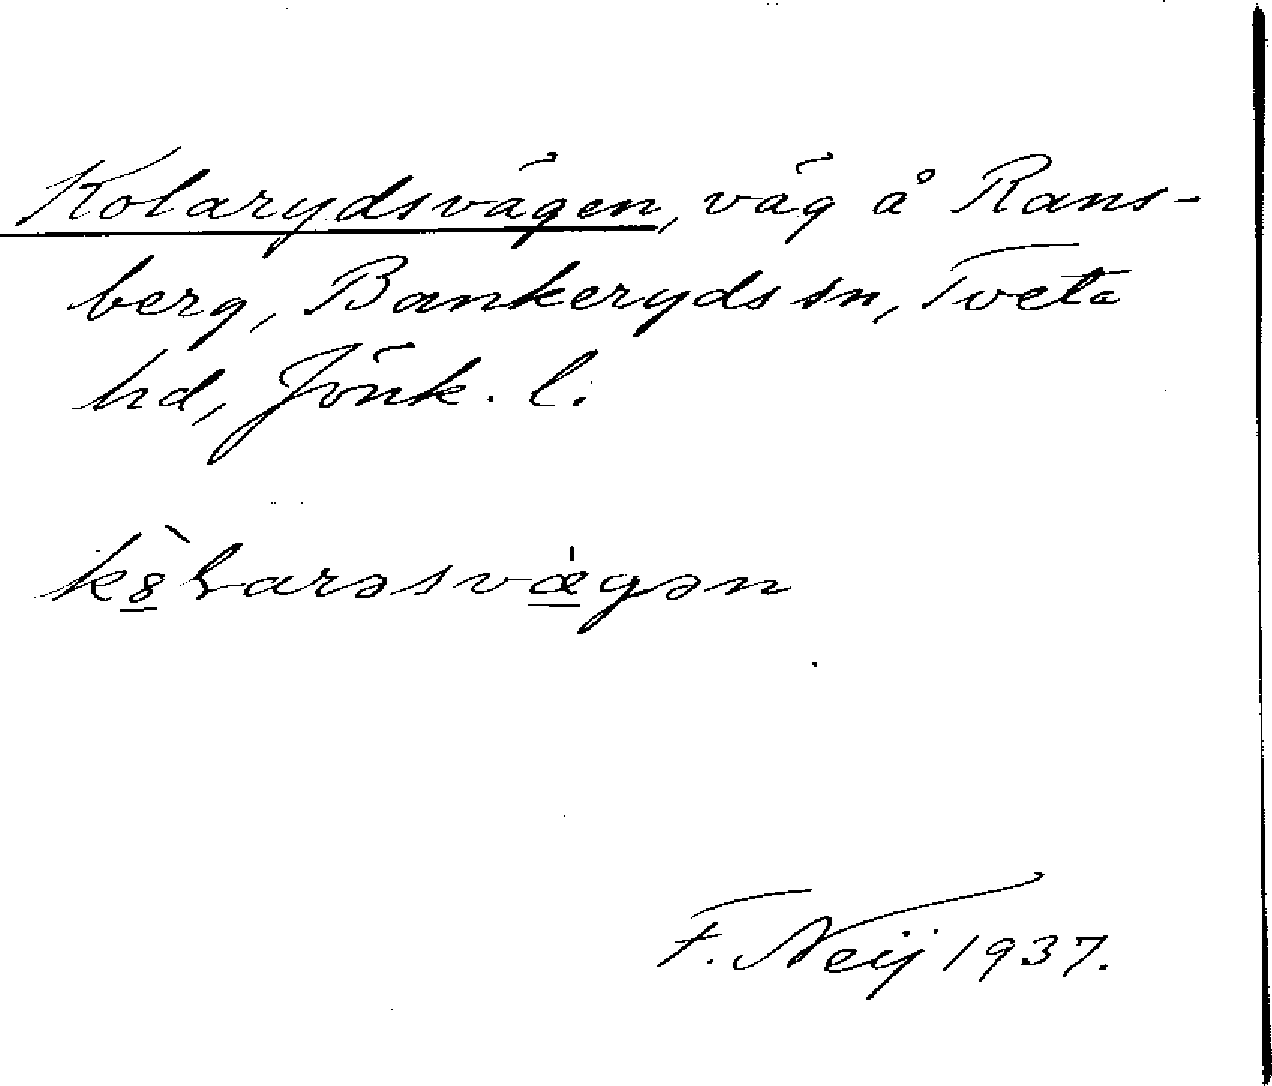 Kolarydsvägen, väg å Rans-
berg, Bankeryds sn, Tveta
hd, Jönk. l.
kȣ̀ɭarəsvǽgən
F. Neij 1937.